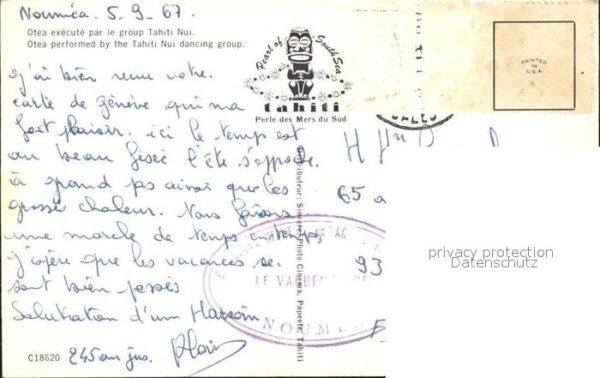 Nouméa. 5. 9. 67.
Otea exécuté par le group Tahiti Nui.
Otea performed by the Tahiti Nui dancing group.
j'ai bien reçu votre
carte de Zénève qui m'a
fort plaisir. ici le temps est
au beau fixe l'été s'approche
à grand pas ainsi que les
grosses chaleur. Nous faisons
une marche de temps en temps,
j'espère que les vacances se
sont bien passés
Salutation d'un
C18620
Pearl of South Sea
tahiti
Perle des Mers du Sud
Distributeur: Sincere Photo Cinema, Papeete, Tahiti
PRINTED IN
U.S.A.
65
93
NOUM
privacy protection
Datenschutz